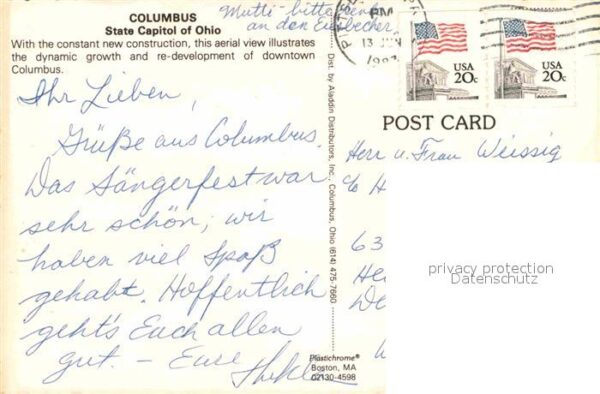 COLUMBUS
State Capitol of Ohio
With the constant new construction, this aerial view illustrates
the dynamic growth and re-development of downtown
Columbus.
Mutti - bitte
an den
Ihr Lieben,
Grüße aus Columbus.
Das Sängerfest war
sehr schön; wir
haben viel Spaß
gehabt. Hoffentlich
geht's Euch allen
gut. — Eure
Dist. by Aladdin Distributors, Inc., Columbus, Ohio (614) 475-7660
Plastichrome®
Boston, MA
02130-4598
PM
13 JUN
USA
20c
USA
20c
POST CARD
Herr u. Frau Weissig
c/o H
63
He
We
W
privacy protection
Datenschutz